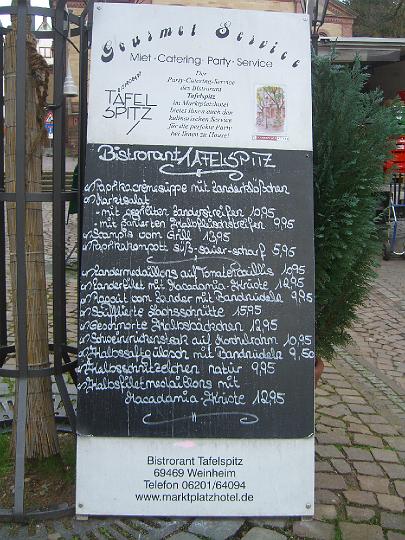 Gourmet Service
Miet · Catering · Party · Service
Der
Party-Catering-Service
des Bistrorant
Tafelspitz
im Marktplatzhotel
bietet Ihnen auch den
kulinarischen Service
für die perfekte Party
bei Ihnen zu Hause!
BISTRORANT
TAFEL
SPITZ
Bistrorant TAFELSPITZ
Paprikacremesuppe mit Zanderklößchen
Marktsalat
- mit gegrillten Zanderstreifen 10,95
- mit panierten Kalbfleischstreifen 9,95
Scampis vom Grill 13,95
Paprikakernpott süß-sauer-scharf 5,95
Zandermedaillons auf Tomaten 10,95
Zanderfilet mit Macadamia-Kruste 12,95
Ragout vom Zander mit Bandnudeln 9,95
Lachsschnitte 15,95
Geschmorte Kalbsbäckchen 12,95
Schweinerückensteak auf Kochelrahm 10,95
Kalbssaftgulasch mit Bandnudeln 9,50
Kalbsschnitzelchen natur 9,95
Kalbsfiletmedaillons mit
Macadamia-Kruste 12,95
Bistrorant Tafelspitz
69469 Weinheim
Telefon 06201/64094
www.marktplatzhotel.de